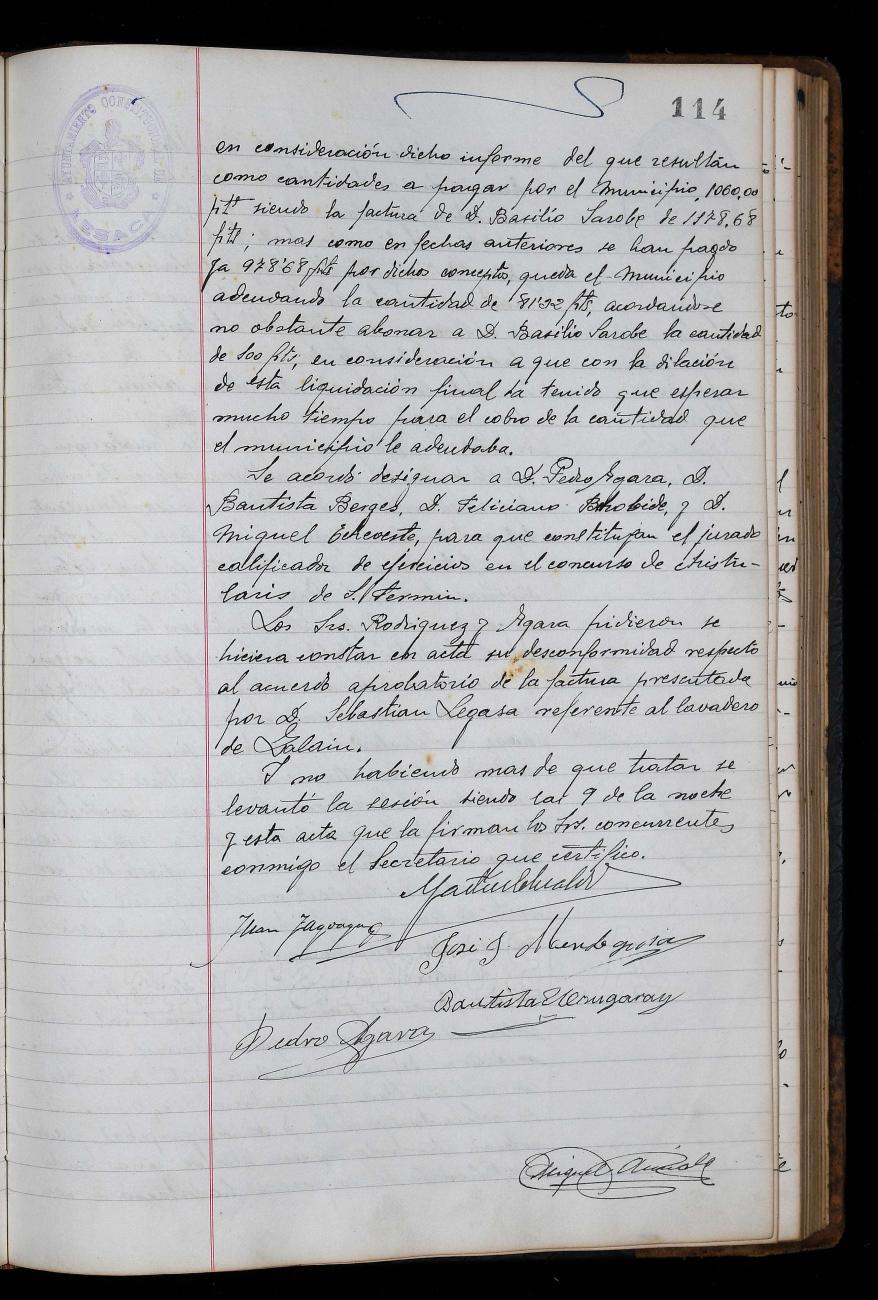 114
AYUNTAMIENTO CONSTITUCIONAL DE
LESACA
en consideración dicho informe del que resultan
como cantidades a pagar por el Municipio, 1060,00
ptˢ siendo la factura de D. Basilio Sarobe de 1178,68
ptˢ; mas como en fechas anteriores se han pagado
ya 978'68 ptˢ por dichos conceptos, queda el Municipio
adeudando la cantidad de 81'32 ptˢ, acordandose
no obstante abonar a D. Basilio Sarobe la cantidad
de 100 ptˢ, en consideración a que con la dilación
de esta liquidación final ha tenido que esperar
mucho tiempo para el cobro de la cantidad que
el municipio le adeudaba.
Se acordó designar a D. Pedro Agara, D.
Bautista Berges, D. Feliciano y D.
Miguel Echeveste, para que constituyan el jurado
calificador de ejercicios en el concurso de chistu-
laris de S. Fermin.
Los Srs. Rodriguez y Agara pidieron se
hiciera constar en acta su desconformidad respecto
al acuerdo aprobatorio de la factura presentada
por D. Sebastian Legasa referente al lavadero
de Zalain.
Y no habiendo mas de que tratar se
levantó la sesión siendo las 9 de la noche
y esta acta que la firman los Srs. concurrentes
conmigo el Secretario que certifico.
Juan
José J.
Bautista
Pedro Agara
Miguel